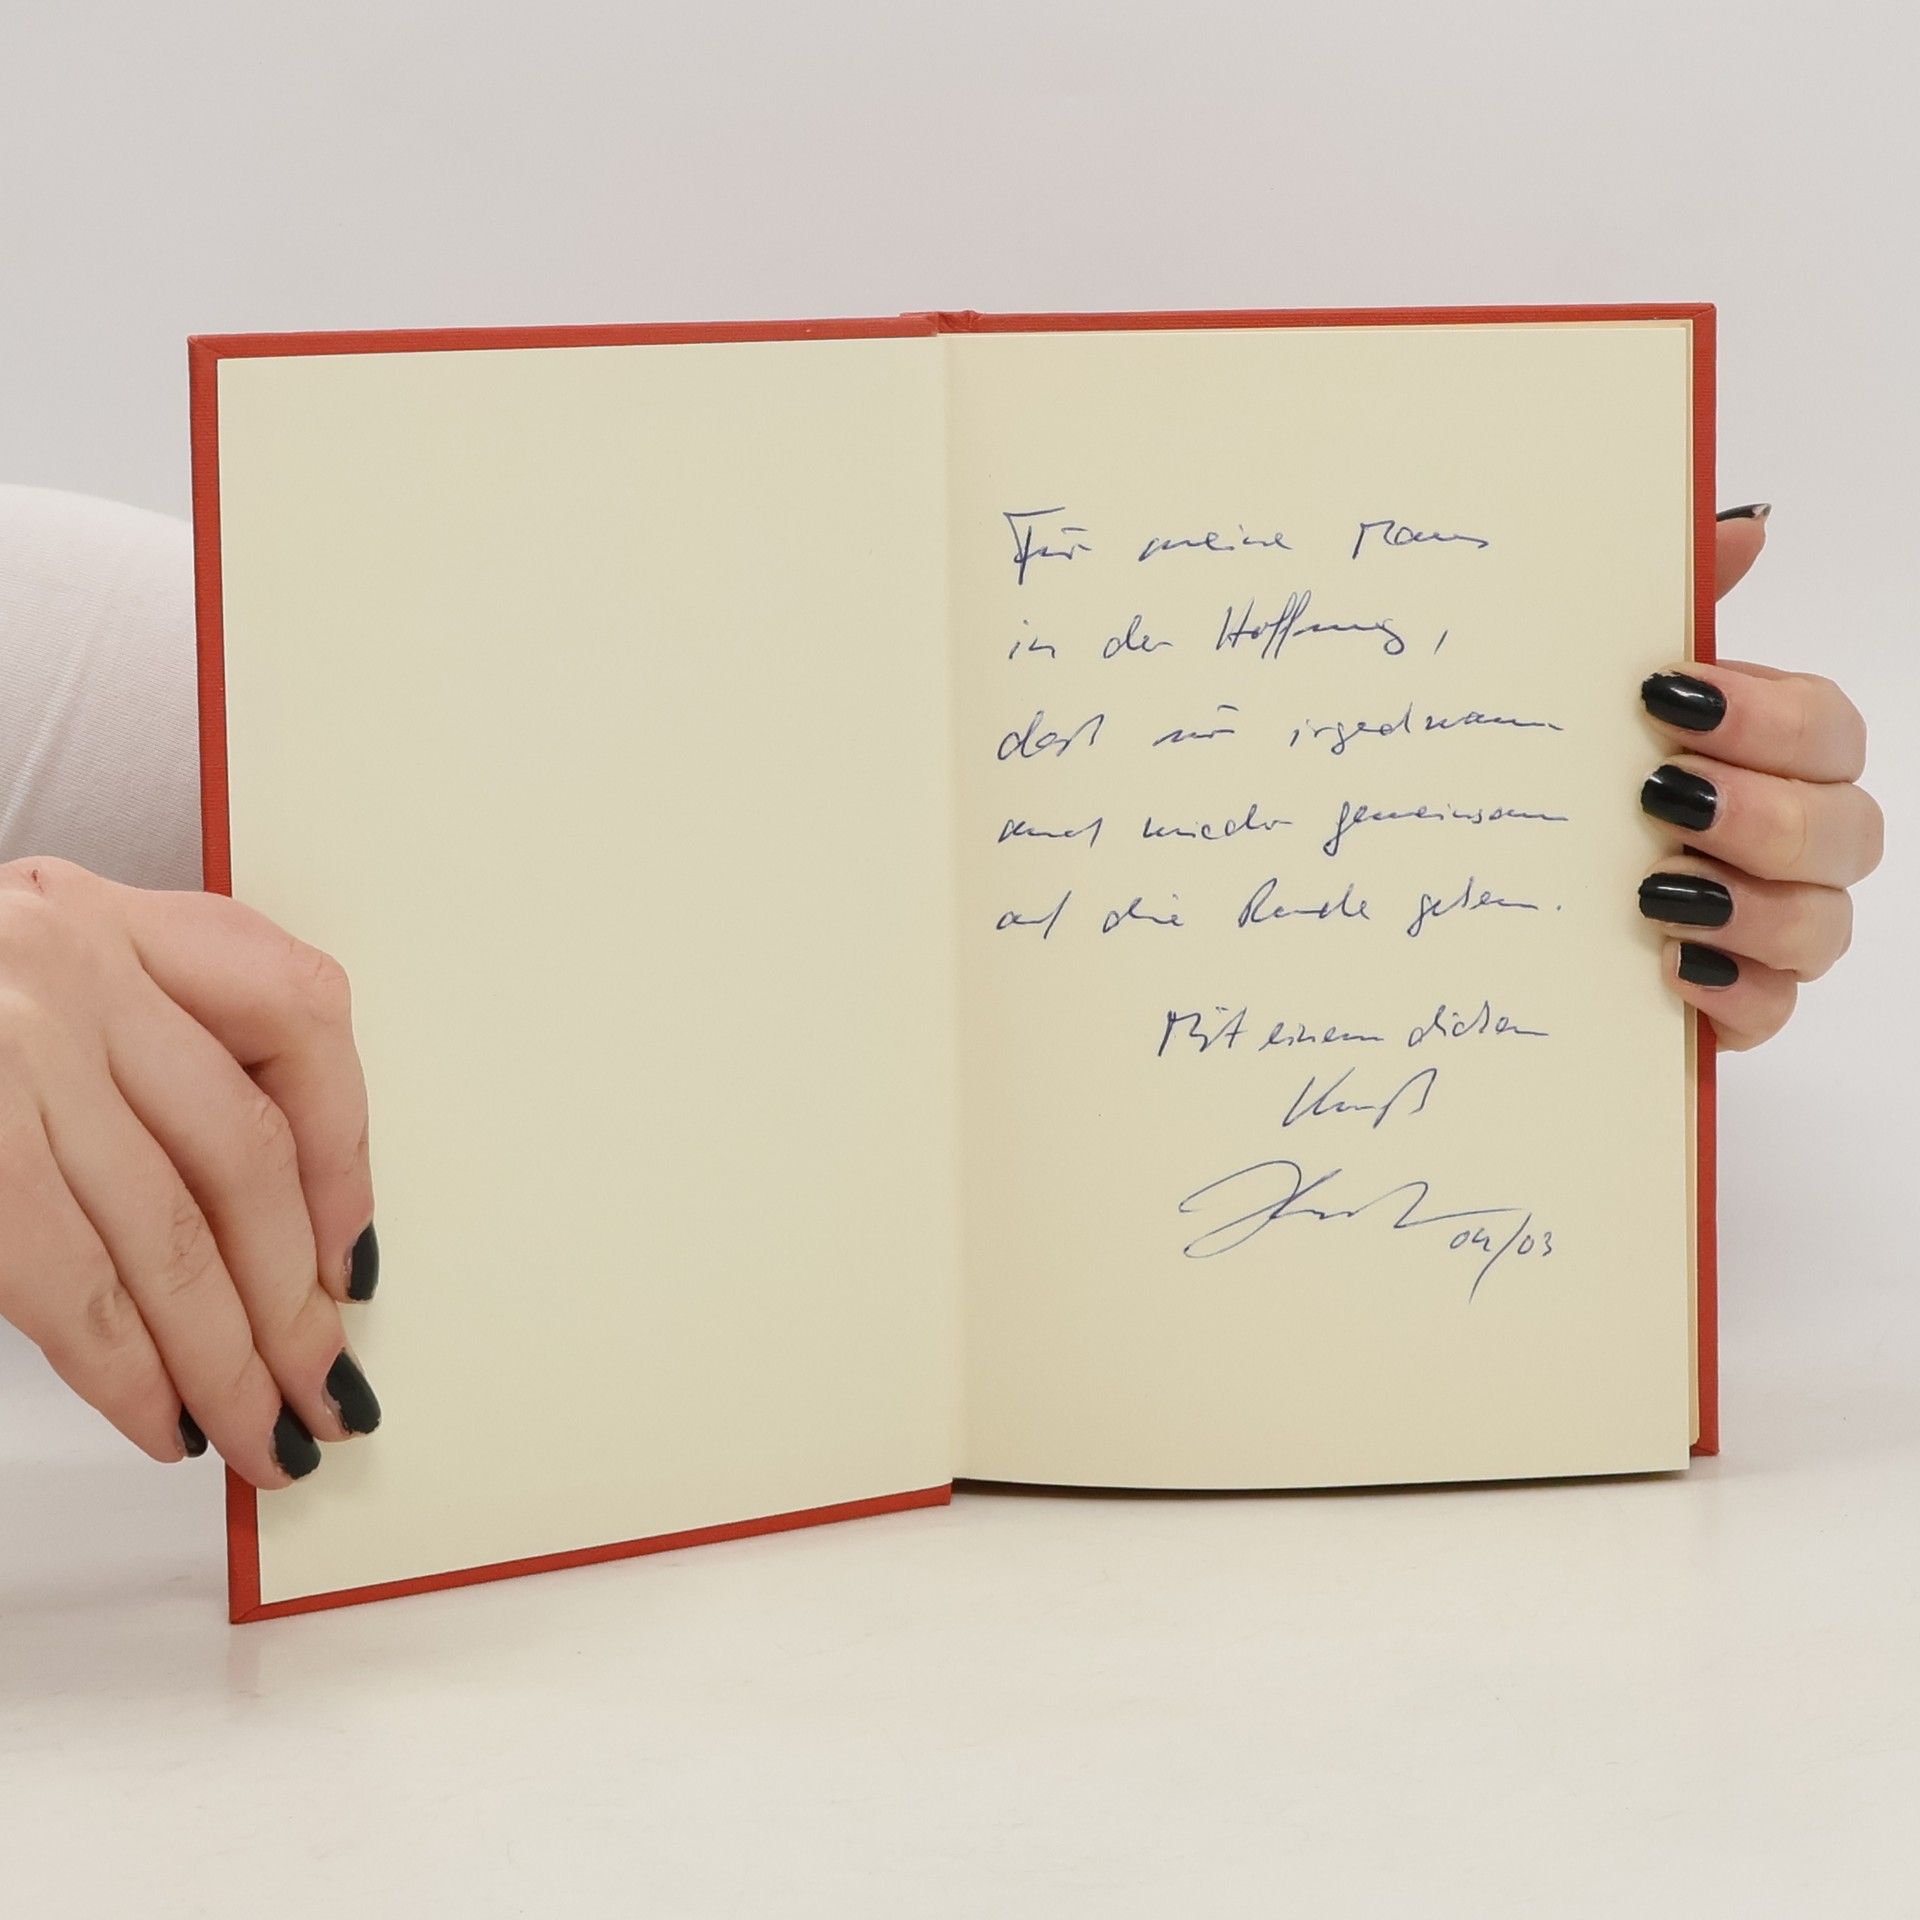 Für meine Maus
in der Hoffnung,
daß wir irgendwann
auch wieder gemeinsam
auf die Runde gehen.
Mit einem dicken
Kuß
04/03